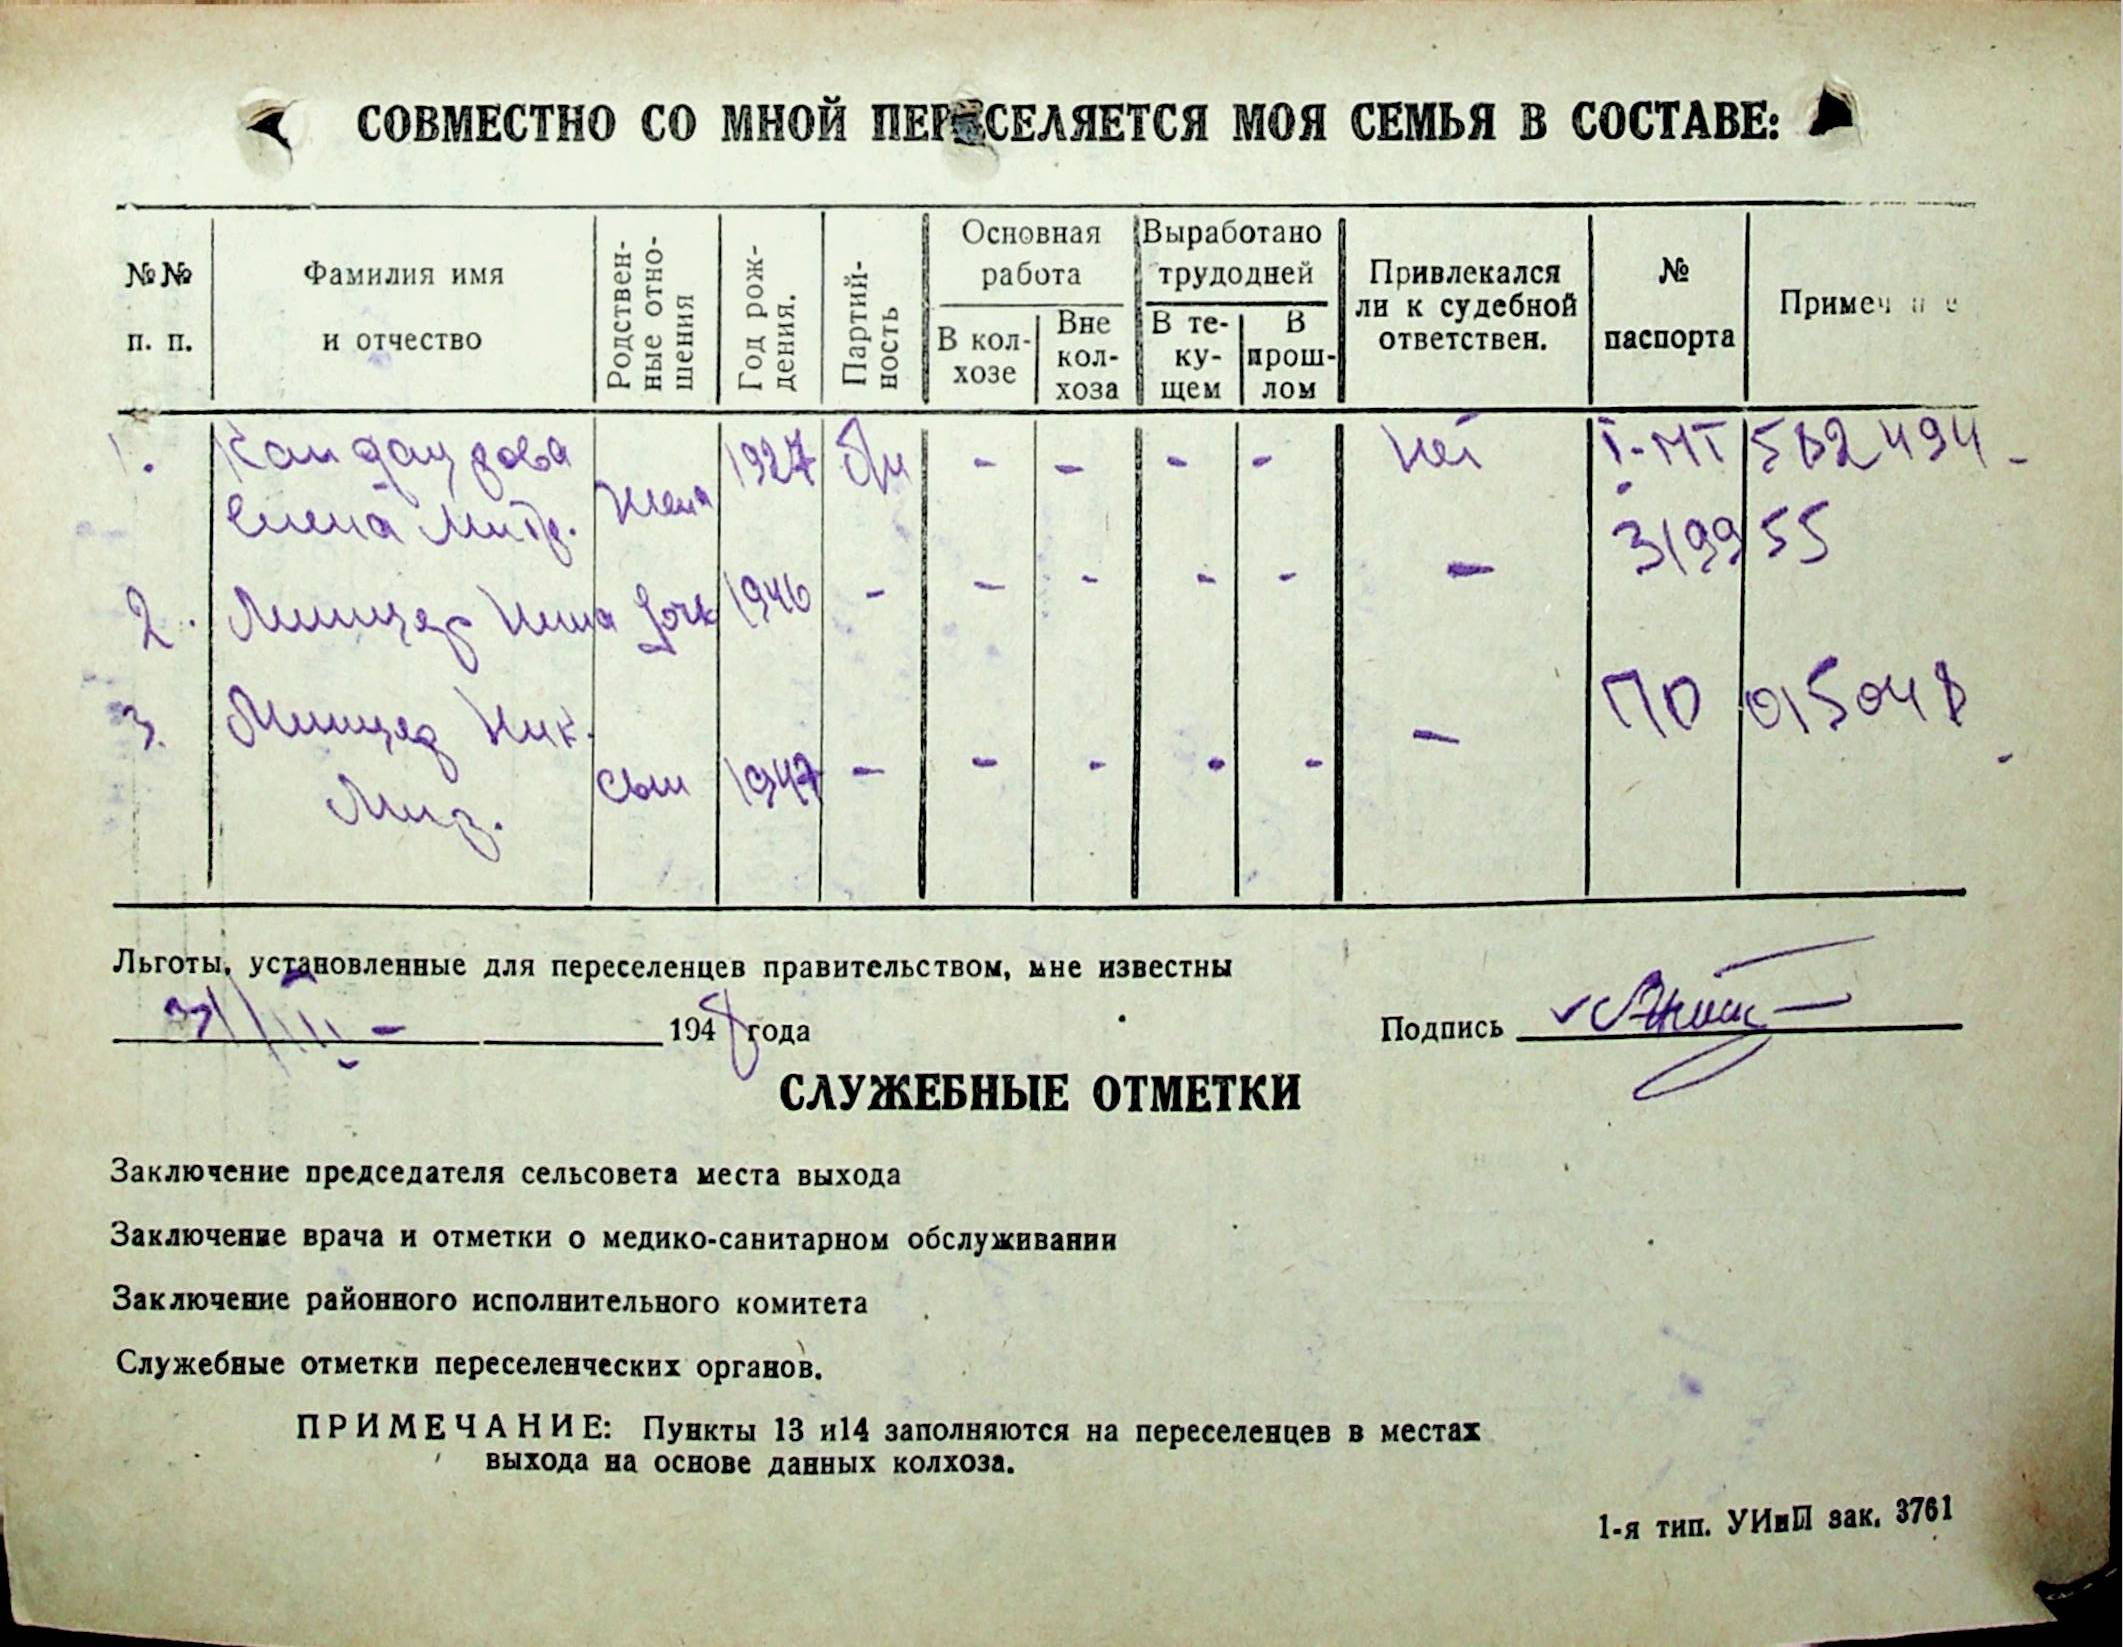 СОВМЕСТНО СО МНОЙ ПЕРЕСЕЛЯЕТСЯ МОЯ СЕМЬЯ В СОСТАВЕ:
№№ п. п.
Фамилия имя и отчество
Родствен-ные отно-шения
Год рож-дения.
Партий-ность
Основная работа
В кол-хозе
Вне кол-хоза
Выработано трудодней
В те-ку-щем
В прош-лом
Привлекался ли к судебной ответствен.
№ паспорта
Примеч н е
1. 1927 б/п - - - - нет I-МТ 582494 -
Елена Митр. жена
319955
2. Минцер Нина дочь 1946 - - - - - -
3. Минцер Ник. ПО 015048
сын 1947 - - - - - -
Льготы, установленные для переселенцев правительством, мне известны
31/III - 1948 года
Подпись
СЛУЖЕБНЫЕ ОТМЕТКИ
Заключение председателя сельсовета места выхода
Заключение врача и отметки о медико-санитарном обслуживании
Заключение районного исполнительного комитета
Служебные отметки переселенческих органов.
ПРИМЕЧАНИЕ: Пункты 13 и14 заполняются на переселенцев в местах
выхода на основе данных колхоза.
1-я тип. УИиП зак. 3761